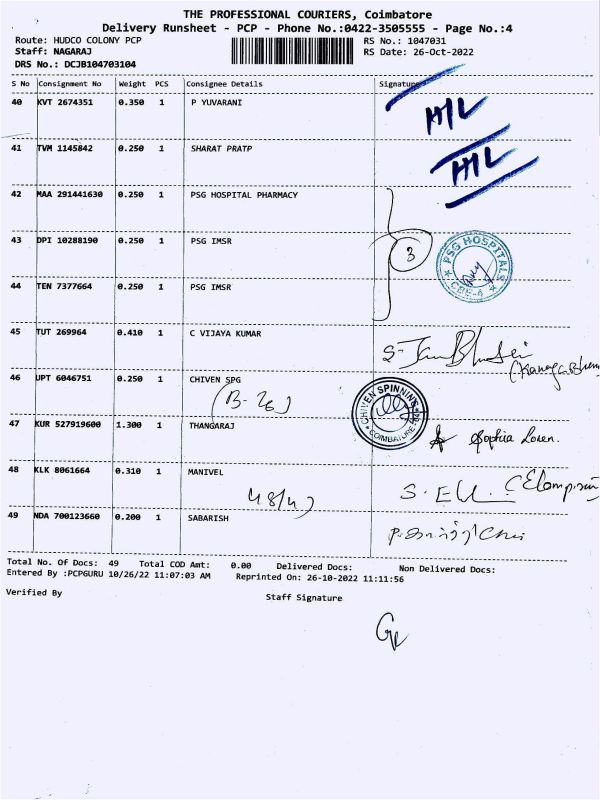 THE PROFESSIONAL COURIERS, Coimbatore
Delivery Runsheet - PCP - Phone No.:0422-3505555 - Page No.:4
Route: HUDCO COLONY PCP RS No.: 1047031
Staff: NAGARAJ RS Date: 26-Oct-2022
DRS No.: DCJB104703104
S No Consignment No Weight PCS Consignee Details Signature
40 KVT 2674351 0.350 1 P YUVARANI
41 TVM 1145842 0.250 1 SHARAT PRATP
42 MAA 291441630 0.250 1 PSG HOSPITAL PHARMACY
43 DPI 10288190 0.250 1 PSG IMSR 3 PSG HOSPITALS CBE-4
44 TEN 7377664 0.250 1 PSG IMSR
45 TUT 269964 0.410 1 C VIJAYA KUMAR
46 UPT 6046751 0.250 1 CHIVEN SPG
(B-26) CHIVEN SPINNING COIMBATORE
47 KUR 527919600 1.300 1 THANGARAJ Sophia Loren.
48 KLK 8061664 0.310 1 MANIVEL
48/4)
49 NDA 700123660 0.200 1 SABARISH
Total No. Of Docs: 49 Total COD Amt: 0.00 Delivered Docs: Non Delivered Docs:
Entered By :PCPGURU 10/26/22 11:07:03 AM Reprinted On: 26-10-2022 11:11:56
Verified By Staff Signature